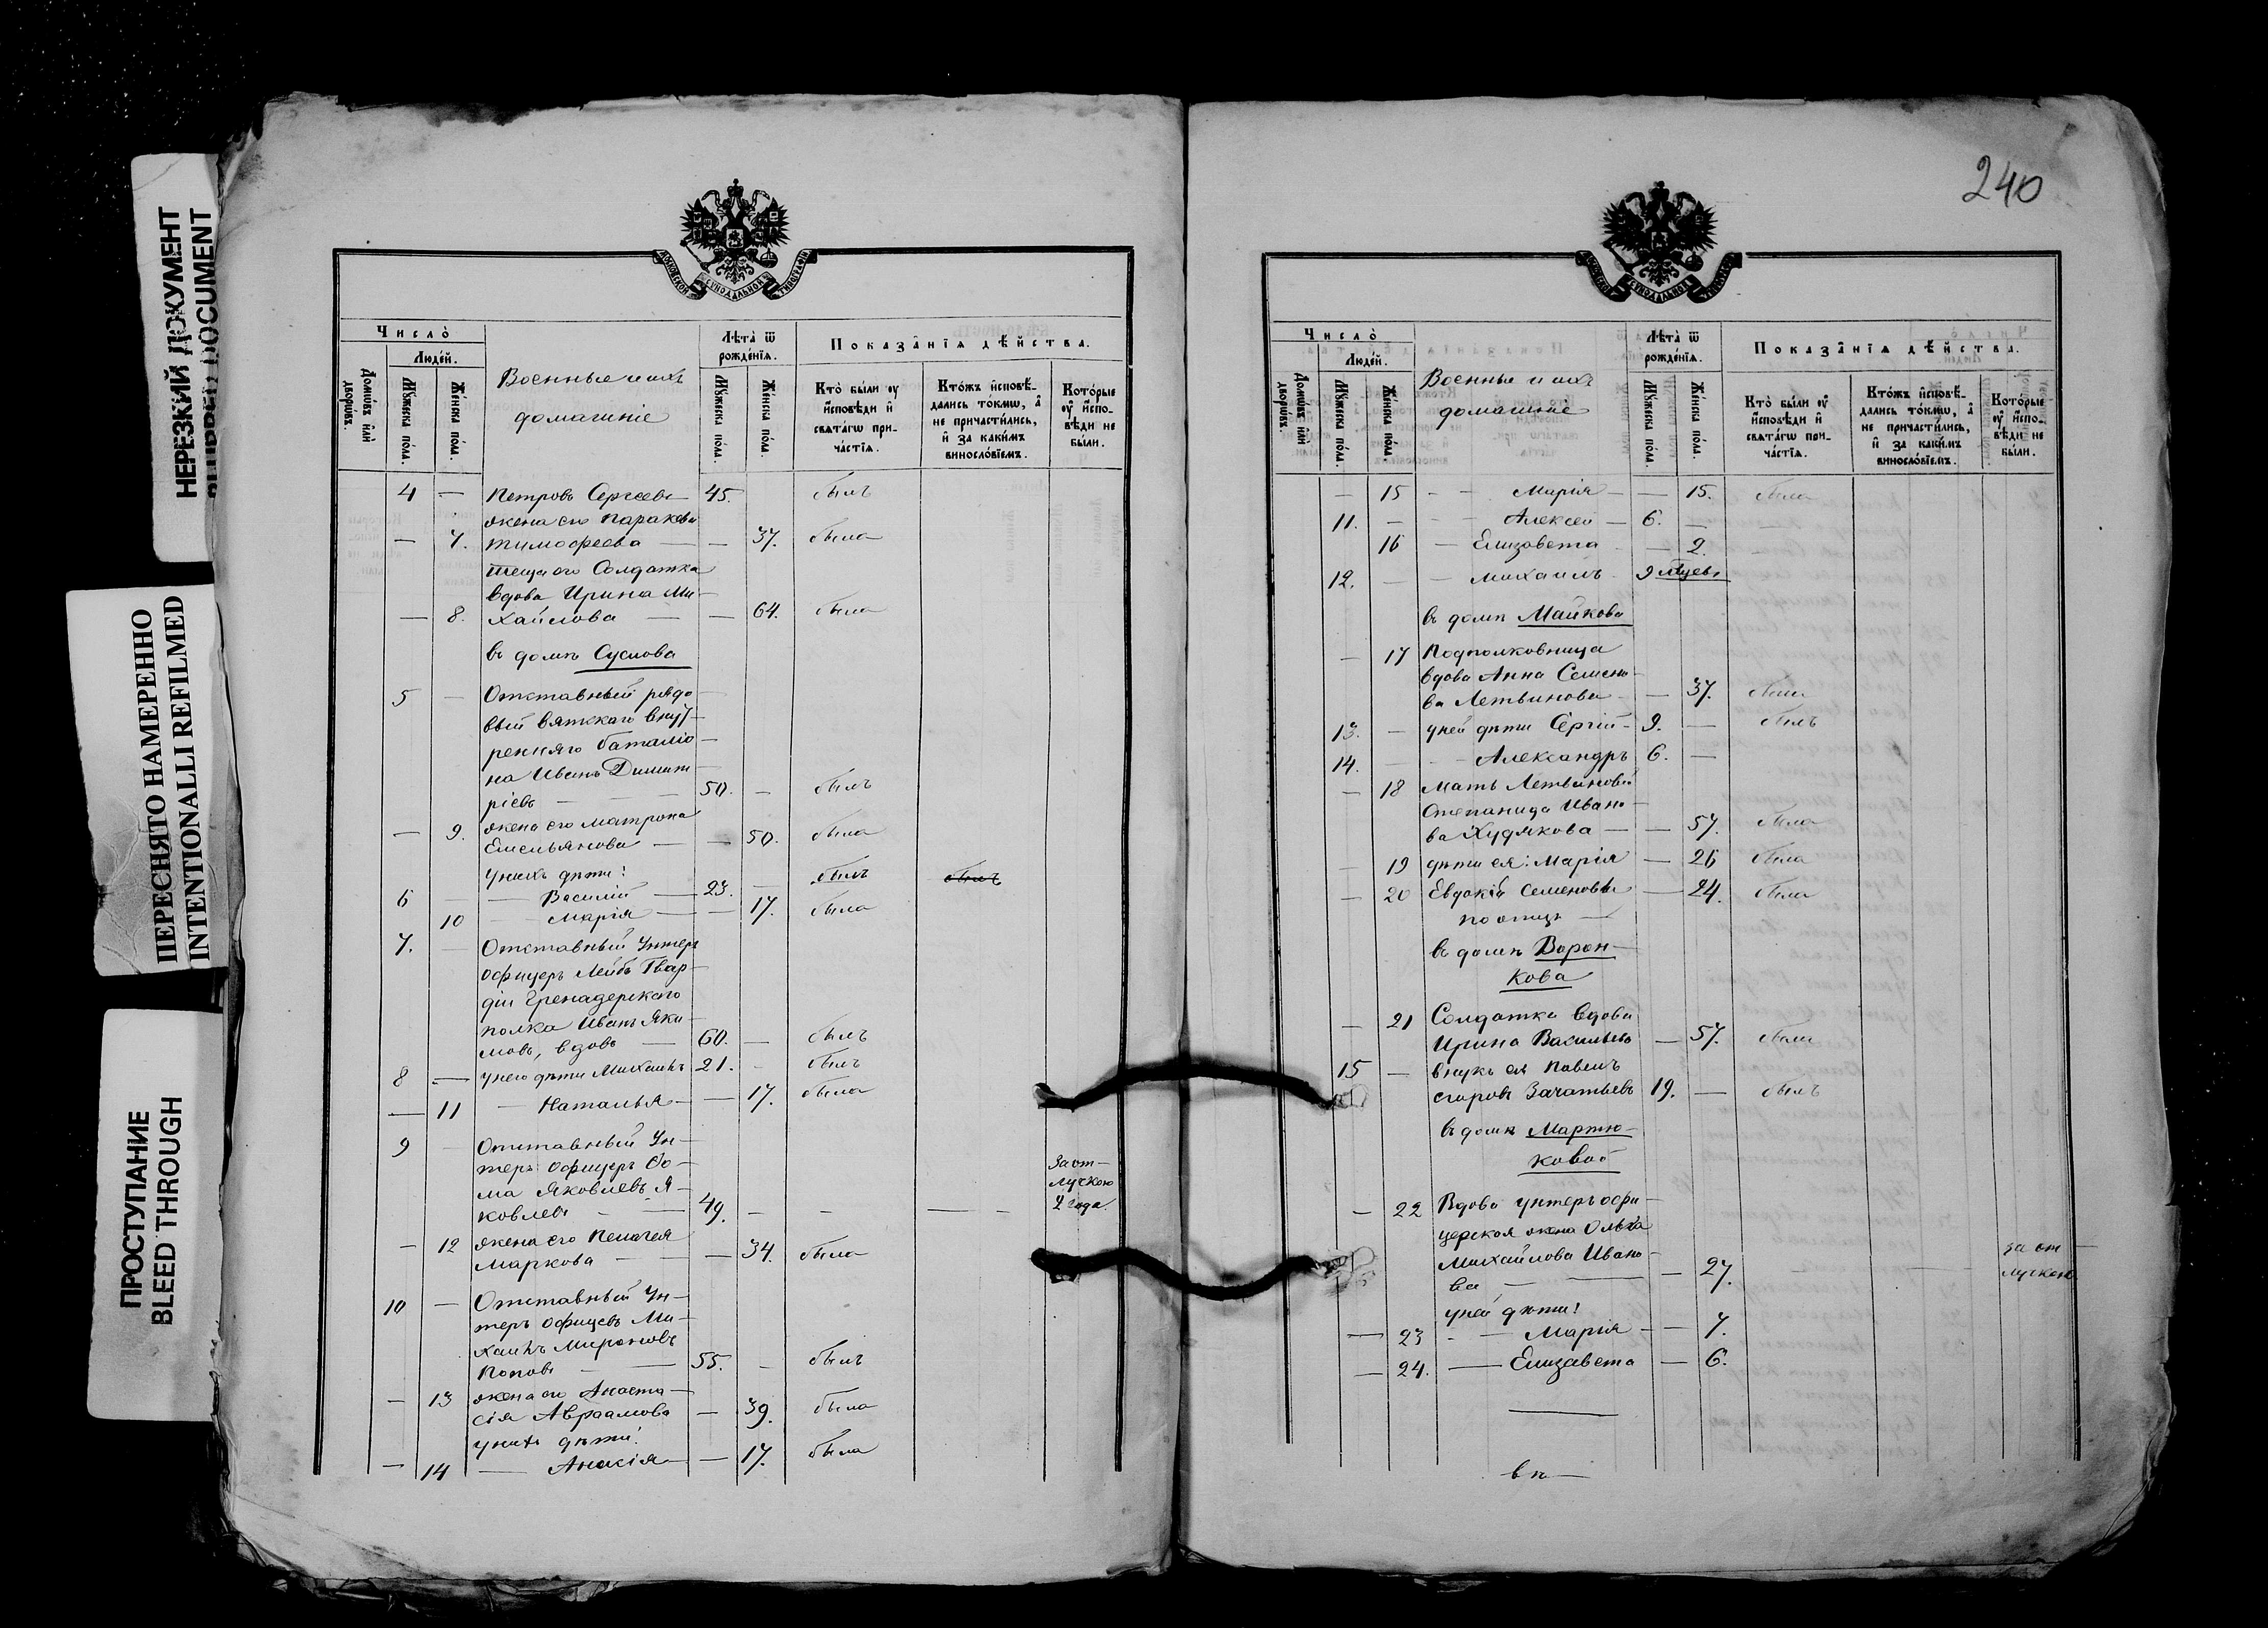 НЕРЕЗКИЙ ДОКУМЕНТ
DOCUMENT
ПЕРЕСНЯТО НАМЕРЕННО
INTENTIONALLI REFILMED
ПРОСТУПАНИЕ
BLEED THROUGH
МОСКОВСКОЙ СѴНОДАЛЬНОЙ ТИПОГРАФІИ
Число̀
Людей.
Домѡвъ и҆лѝ дворѡвъ.
Мꙋжеска пола.
Женска пола.
Военные и ихъ
домашніе
Лѣта̀ ѿ
рожденїѧ.
Мꙋжеска пола.
Женска пола.
Показанїѧ дѣйства.
Кто̀ были оу҆
и҆сповѣди и҆
свѧтагѡ при-
частїѧ.
Ктожъ и҆сповѣ-
дались токмѡ, а҆
не причастились,
и҆ за какимъ
винословїемъ.
Которые
оу҆ и҆спо-
вѣди не
были.
4 — Петровъ Сергеевъ — 45. былъ
жена его Параскева
— 7. Тимофеева — — 37. была
теща его Солдатка
вдова Ирина Ми-
— 8. хайлова — — 64. была
въ домѣ Суслова
5 — Отставный рядо-
вый вятскаго внут-
ренняго баталіо-
на Иванъ Димит-
ріевъ — 50. — былъ
— 9. жена его Матрона
Емельянова — — 50. была
у нихъ дѣти:
6 — — Василій — 23. — былъ былъ
10 — Марія — — 17. была
7. — Отставный Унтеръ
офицеръ Лейбъ Гвар-
діи Гренадерскаго
полка Иванъ Яки-
мовъ, вдовъ — 60. — былъ
8 — у него дѣти Михаилъ 21. - былъ
— 11 — Наталья — — 17. была
9 — Отставный Ун-
теръ офицеръ Ѳо-
ма Яковлевъ Я-
ковлевъ — 49. — — — —
За от-
лучкою
2 года.
— 12 жена его Пелагея
Маркова — — 34. была
10 — Отставный Ун-
теръ офицеръ Ми-
хаилъ Мироновъ
Поповъ — 55. — былъ
— 13 жена его Анаста-
сія Авраамова — 39. была
у нихъ дѣти:
— 14 — Анисія — — 17. была
240
МОСКОВСКОЙ СѴНОДАЛЬНОЙ ТИПОГРАФІИ
Число̀
Людей.
Домѡвъ и҆лѝ дворѡвъ.
Мꙋжеска пола.
Женска пола.
Военные и ихъ
домашніе
Лѣта̀ ѿ
рожденїѧ.
Мꙋжеска пола.
Женска пола.
Показанїѧ дѣйства.
Кто̀ были оу҆
и҆сповѣди и҆
свѧтагѡ при-
частїѧ.
Ктожъ и҆сповѣ-
дались токмѡ, а҆
не причастились,
и҆ за какимъ
винословїемъ.
Которые
оу҆ и҆спо-
вѣди не
были.
— 15 - - Марія — — 15. была
11. — - Алексей — 6. —
16 — Елизавета — 2.
12. — - Михаилъ 9 мѣсец.
въ домѣ Майкова
— 17 Подполковница
вдова Анна Семено-
ва Летвинова — — 37. была
13. — у ней дѣти Сергій — 9. — былъ
14. — - Александръ 6. —
— 18 Мать Летвиновой
Степанида Ивано-
ва Худякова — — 57. была
— 19 дѣти ея: Марія — 26 была
— 20 Евдокія Семеновы — 24. была
по отцѣ —
въ домѣ Ворон-
кова
— 21 Солдатка вдова
Ирина Васильева — 57. была
15 — внукъ ея Павелъ
Егоровъ Зачатьевъ 19. — былъ
въ домѣ Мартю-
ковой
— 22 Вдова унтеръ офи-
церская жена Ольга
Михайлова Ивано-
ва — — — 27. — —
за от-
лучкою
у ней дѣти:
— 23 - — Марія — — 7.
— 24. — Елизавета — 6.
вѣ—